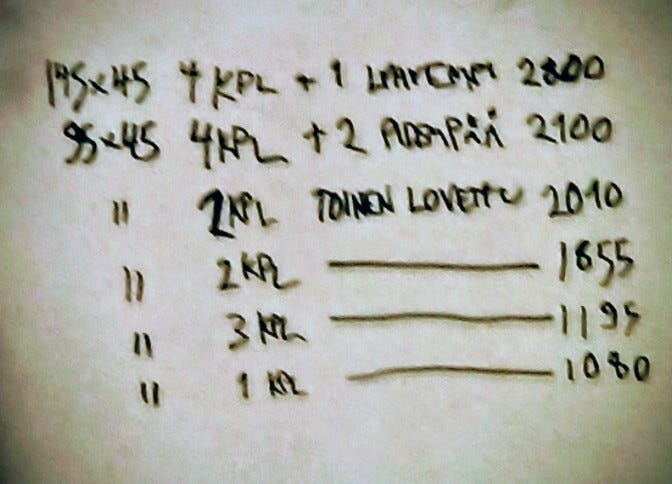 145x45 4 KPL + 1 2800
95x45 4 KPL + 2 PIDEMPÄÄ 2100
" 2 KPL TOINEN LOVETTU 2010
" 2 KPL ——— 1855
" 3 KPL ——— 1195
" 1 KPL ——— 1080